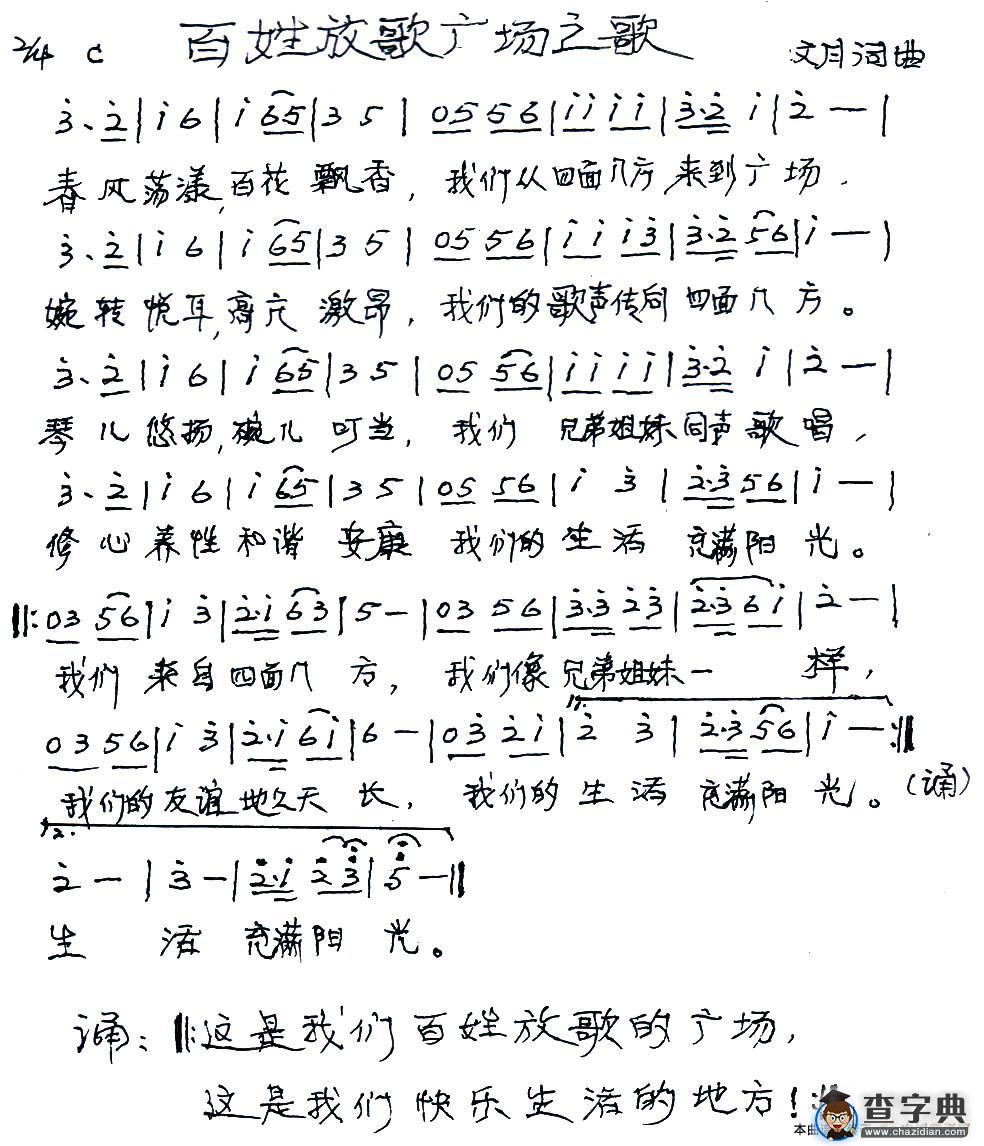 2/4 C 百姓放歌广场之歌 文月词曲
3̇、2̇|i̇ 6|i̇ 65|3 5|05 56|i̇ i̇ i̇ i̇|3̇·2̇ i̇|2̇ —|
春风荡漾,百花飘香,我们从四面八方来到广场,
3̇、2̇|i̇ 6|i̇ 65|3 5|05 56|i̇ i̇ i̇ 3̇|3̇·2̇ 56|i̇ —|
婉转悦耳,高亢激昂,我们的歌声传向四面八方。
3̇、2̇|i̇ 6|i̇ 65|3 5|05 56|i̇ i̇ i̇ i̇|3̇·2̇ i̇|2̇ —|
琴儿悠扬,碗儿叮当,我们兄弟姐妹同声歌唱,
3̇、2̇|i̇ 6|i̇ 65|3 5|05 56|i̇ 3̇|2̇·3̇ 56|i̇ —|
修心养性和谐安康 我们的生活充满阳光。
‖:03 56|i̇ 3̇|2̇·i̇ 63|5 —|03 56|3̇·3̇ 2̇3̇|2̇·3̇ 6i̇|2̇ —|
我们来自四面八方,我们像兄弟姐妹一样,
1.
03 56|i̇ 3̇|2̇·i̇ 6i̇|6 —|03̇ 2̇i̇|2̇ 3̇|2̇·3̇ 56|i̇ —:‖
我们的友谊地久天长,我们的生活充满阳光。(诵)
2.
2̇ —|3̇ —|2̇·i̇ 2̇3̇|5̇ —‖
生活充满阳光。
诵:‖:这是我们百姓放歌的广场,
这是我们快乐生活的地方!:‖
查字典
www.chazidian.com